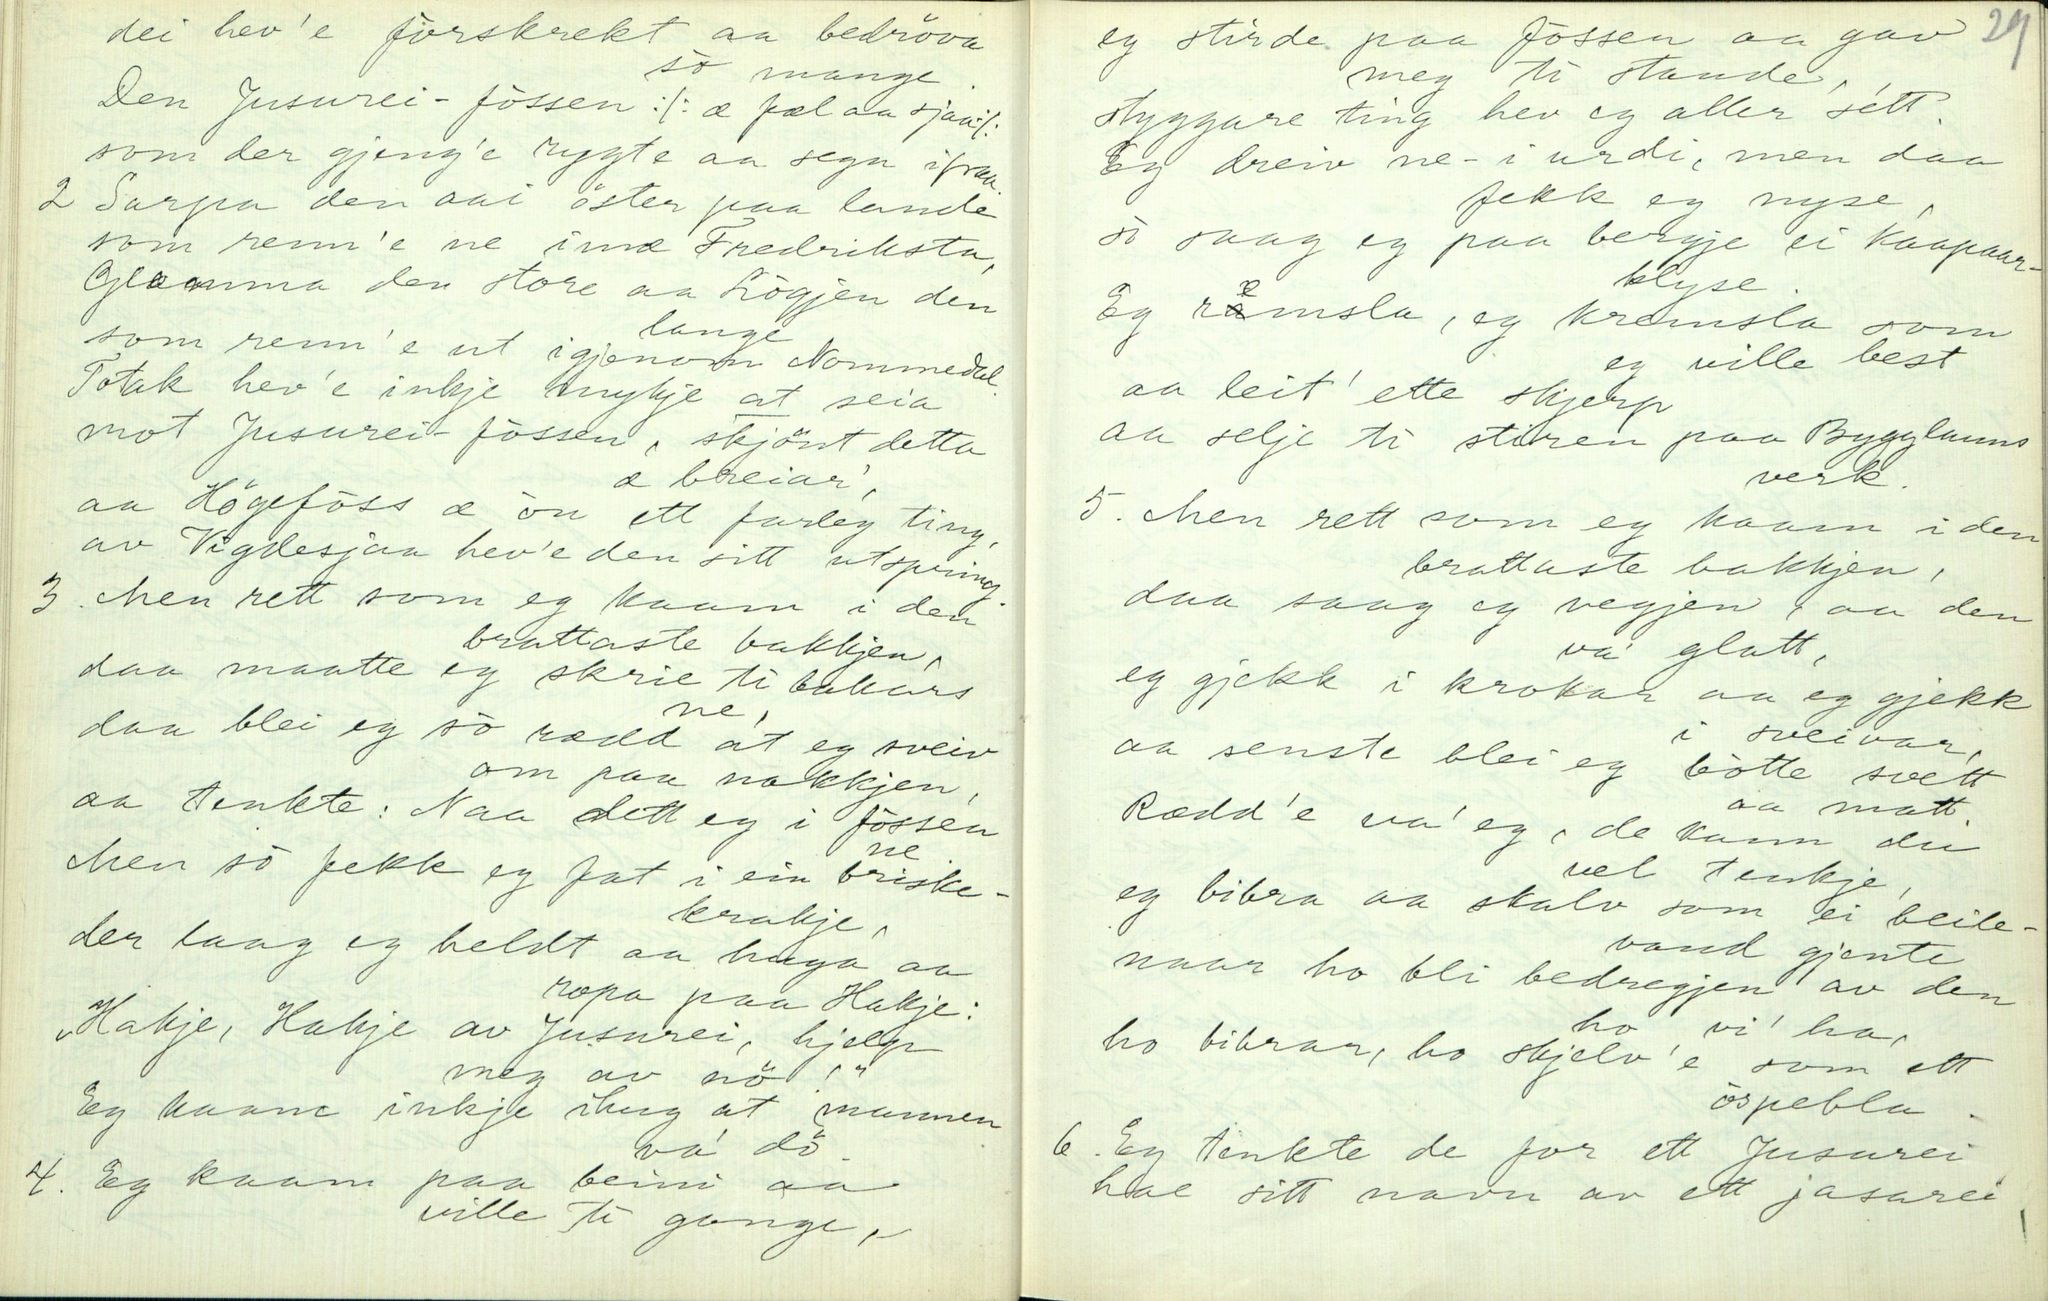 dei hev'e förskrekt aa bedröva
sò mange.
Den Jusurei-fòssen :/: æ fæl aa sjaa :/:
som der gjeng'e rygte aa segn ifraa.
2 Sarpa den aai öster paa lande
som renn'e ne innæ Fredriksta,
Glaamma den store aa Lògjen den
lange
som renn'e ut igjenom Nommedal.
Totak hev'e inkje mykje at seia
mot Jusurei-fòssen, skjönt detta
æ breiar',
aa Högefòss æ òn ett farleg ting,
av Vigdesjaa hev'e den sitt utspring.
3. Men rett som eg kaam i den
brattaste bakkjen,
daa maatte eg skrie ti bakars
ne,
daa blei eg sò rædd at eg sveiv
om paa nakkjen,
aa tenkte: Naa dett eg i fòssen
ne
Men sò fekk eg fat i ein briske-
krakje,
der laag eg heldt aa huga aa
ropa paa Hakje:
"Hakje, Hakje av Jusurei, hjelp
meg av nö!"
Eg kaam inkje ihug at mannen
va' dö.
4. Eg kaam paa beini aa
ville ti gange,
29
eg stirde paa fòssen aa gav
meg ti stande,
styggare ting hev eg aller sétt.
Eg dreiv ne-i urdi, men daa
fekk eg nyse,
sò saag eg paa bergje ei kaapaar-
klyse.
Eg remsla, eg kremsla som
eg ville best
aa leit' ette skjerp
aa selje ti stiren paa Bygglanns
verk.
5. Men rett som eg kaam i den
brattaste bakkjen,
daa saag eg vegjen, aa den
va' glatt,
eg gjekk i krokar aa eg gjekk
i sveivar,
aa senste blei eg bòtte svett
aa matt.
Rædd'e va' eg, de kann du
vel tenkje,
eg bibra aa skalv som ei beile-
vand gjente
naar ho bli bedregjen av den
ho vi' ha,
ho bibrar, ho skjelv'e som ett
òspebla.
6. Eg tenkte de for ett Jusurei
hae sitt navn av ett jasarei